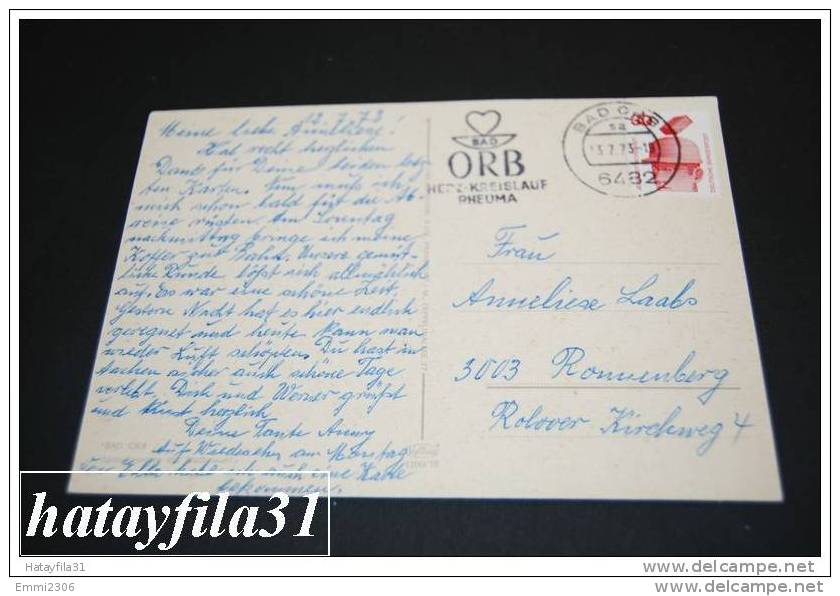 12.7.73
Meine liebe Anneliese!
Hab recht herzlichen
Dank für Deine beiden
Karten. Nun muß ich
mich schon bald für die Ab-
reise rüsten. Am Sonntag
nachmittag bringe ich meine
Koffer zur Bahn. Unsere gemüt-
liche Runde löst sich allmählich
auf. Es war eine schöne Zeit.
Gestern Nacht hat es hier endlich
geregnet und heute kann man
wieder Luft schöpfen. Du hast in
Aachen sicher auch schöne Tage
verlebt. Dich und Werner grüßt
und küsst herzlich
Deine Tante
Auf Wiedersehn am Montag
habe ich auch eine Karte
bekommen.
BAD
ORB
HERZ-KREISLAUF
RHEUMA
BAD ORB
13.7.73
6482
Frau
Anneliese Laabs
3003 Ronnenberg
Kirchweg 4
hatayfila31
Hatayfila31
www.delcampe.net
Emmi2306
www.delcampe.net